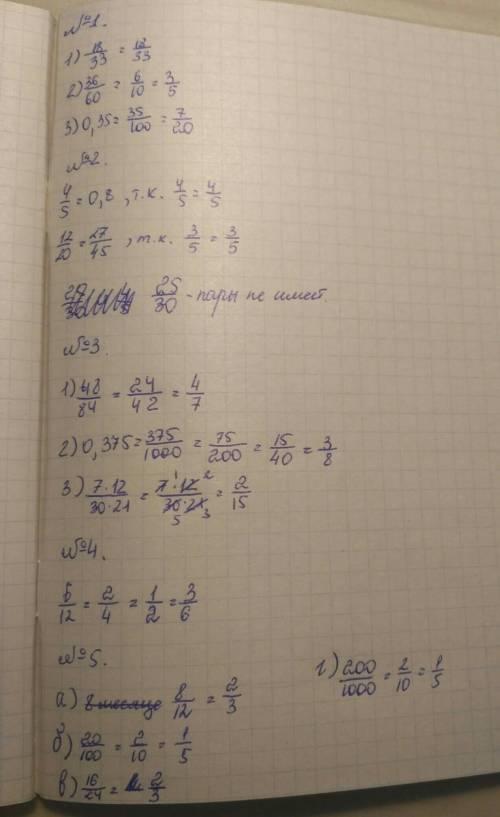 №1.
1) 18/33 = 18/33
2) 36/60 = 6/10 = 3/5
3) 0,35 = 35/100 = 7/20
№2.
4/5 = 0,8, т.к. 4/5 = 4/5
12/20 = 27/45, т.к. 3/5 = 3/5
25/30 - пары не имеет.
№3.
1) 48/84 = 24/42 = 4/7
2) 0,375 = 375/1000 = 75/200 = 15/40 = 3/8
3) 7·12/30·21 = 7·12/30·21 = 2/15
№4.
6/12 = 2/4 = 1/2 = 3/6
№5.
а) 8 месяце 8/12 = 2/3
б) 20/100 = 2/10 = 1/5
в) 16/24 = 2/3
г) 200/1000 = 2/10 = 1/5